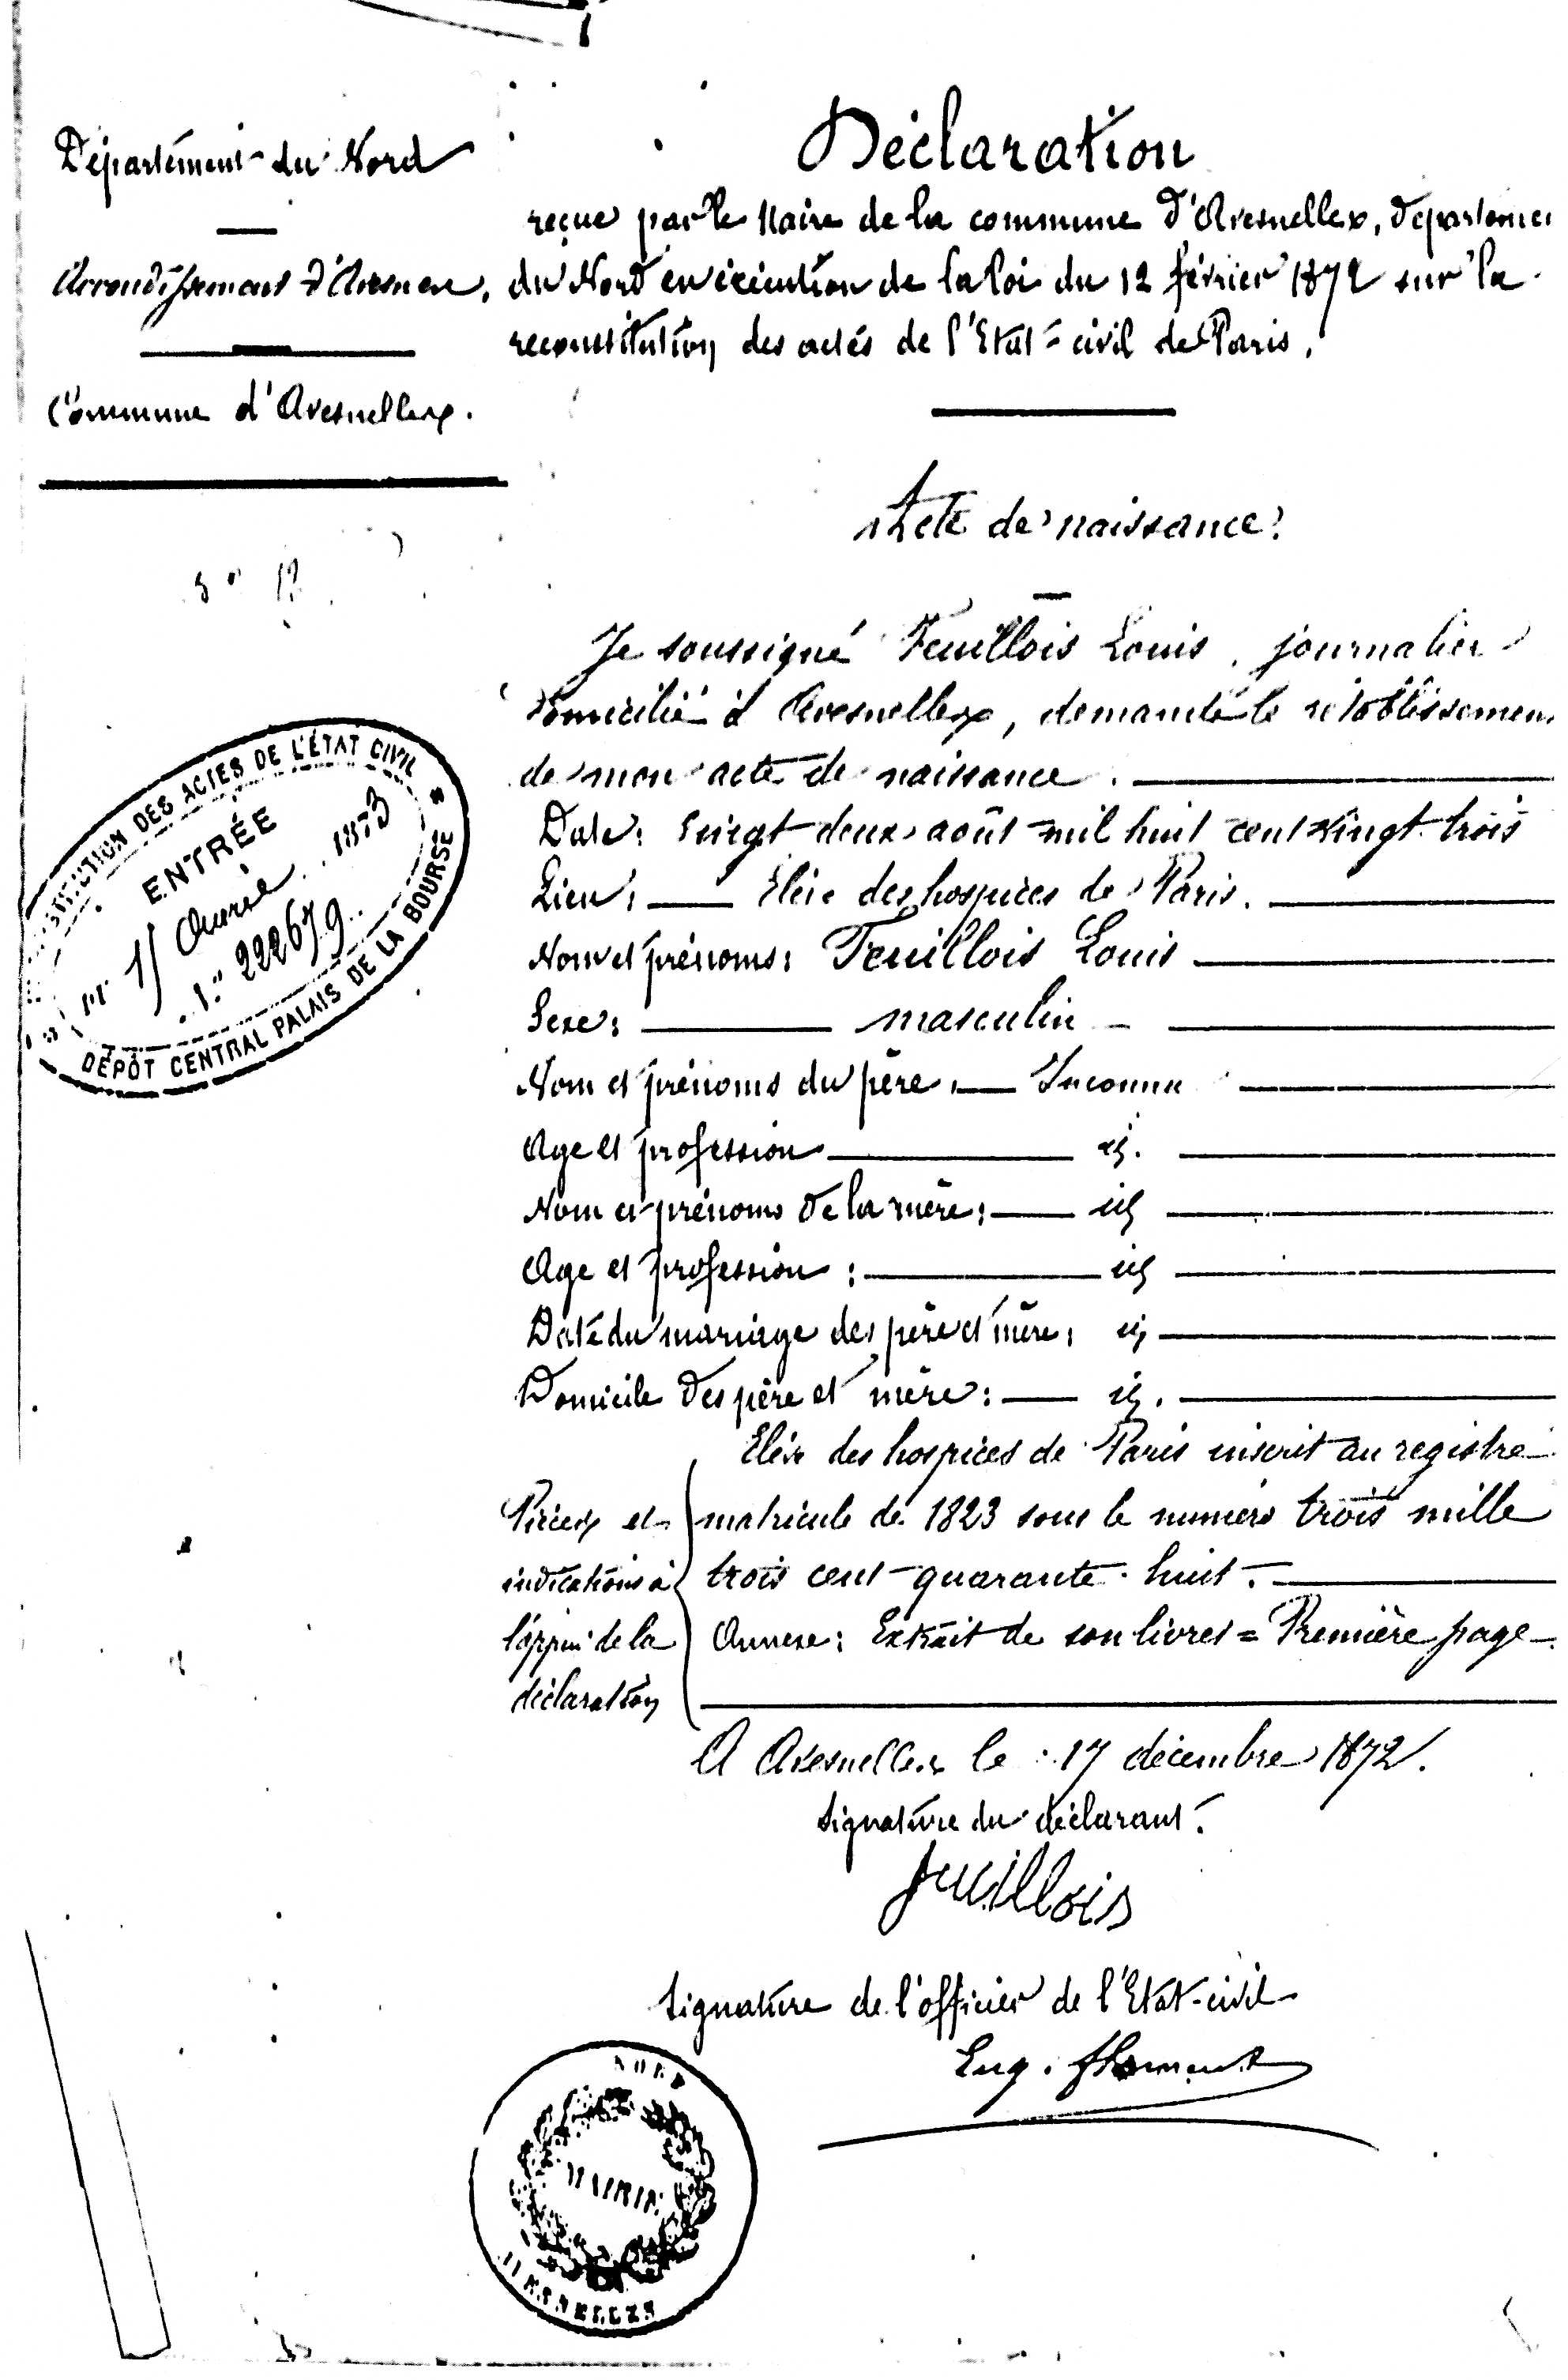 Département du Nord
Arrondissement d'Avesnes.
Commune d'Avesnelles.
Déclaration
reçue par le Maire de la commune d'Avesnelles, départemen
du Nord en exécution de la loi du 12 février 1872 sur la
reconstitution des actes de l'Etat-civil de Paris.
Acte de naissance:
Je soussigné Feuillois Louis, journalier
domicilié à Avesnelles, demande le rétablissemen
de mon acte de naissance.
Date: vingt deux août mil huit cent vingt trois
Lieu: Elève des hospices de Paris.
Nom et prénoms: Feuillois Louis
Sexe: masculin
Nom et prénoms du père: Inconnu
Age et profession id.
Nom et prénoms de la mère: id
Age et profession: id
Date du mariage des père et mère: id
Domicile des père et mère: id.
Pièces et indications à l'appui de la déclaration
Elève des hospices de Paris inscrit au registre
matricule de 1823 sous le numéro trois mille
trois cent quarante-huit.
Annexe: Extrait de son livret = Première page
A Avesnelles le 17 décembre 1872.
Signature du déclarant.
feuillois
Signature de l'officier de l'Etat-civil
Eug. flament
DES ACTES DE L'ÉTAT CIVIL
ENTRÉE
1873
222679
DÉPÔT CENTRAL PALAIS DE LA BOURSE
NORD
MAIRIE
AVESNELLES